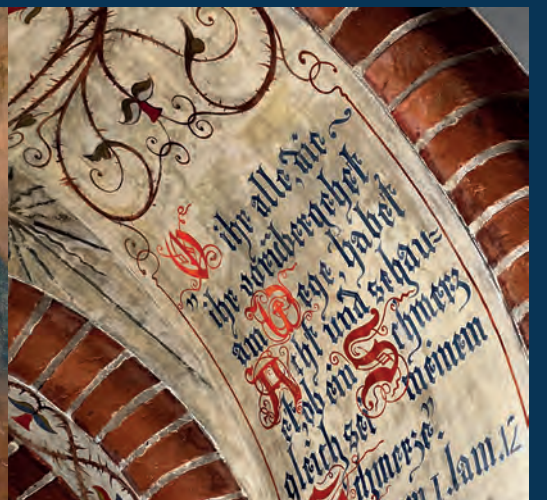 „O ihr alle, die
ihr vorübergehet
am Wege, habet
Acht und schau=
et, ob ein Schmerz
gleich sei meinem
Schmerze."
1. lam. 12